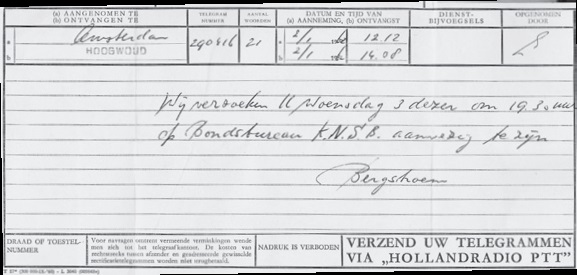 (a) AANGENOMEN TE
(b) ONTVANGEN TE
TELEGRAM NUMMER
AANTAL WOORDEN
DATUM EN TIJD VAN
(a) AANNEMING, (b) ONTVANGST
DIENST-
BIJVOEGSELS
OPGENOMEN
DOOR
a Amsterdam 290816 21 a 2/1 12.12
b HOOGWOUD b 2/1 14.08
Wij verzoeken U Woensdag 3 dezer om 19.30 uur
op Bondsbureau K.N.S.B. aanwezig te zijn
Bergstroem
DRAAD OF TOESTEL-
NUMMER
Voor navragen omtrent vermeende verminkingen wende
men zich tot het telegraafkantoor. De kosten van
rechtstreeks tussen afzender en geadresseerde gewisselde
rectificatietelegrammen worden niet terugbetaald.
NADRUK IS VERBODEN
VERZEND UW TELEGRAMMEN
VIA „HOLLANDRADIO PTT"